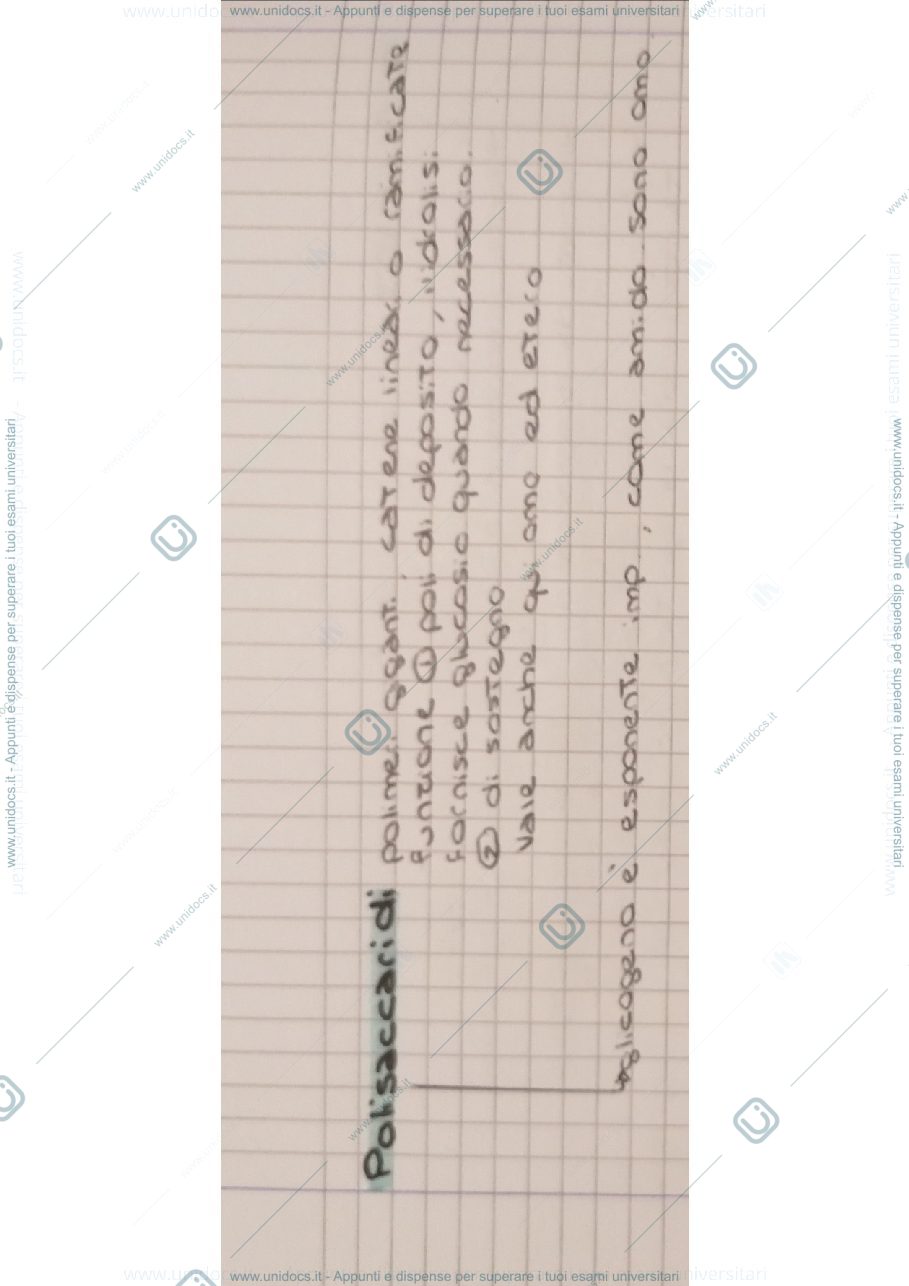 www.unidocs.it - Appunti e dispense per superare i tuoi esami universitari
Polisaccaridi polimeri giganti. catene lineari o ramificate
funzione ① poli di deposito, l'idrolisi
fornisce glucosio quando necessario.
② di sostegno
vale anche qui omo ed etero
↳ glicogeno è esponente imp., come amido sono omo
www.unidocs.it - Appunti e dispense per superare i tuoi esami universitari
www.unidocs.it - Appunti e dispense per superare i tuoi esami universitari
www.unidocs.it - Appunti e dispense per superare i tuoi esami universitari